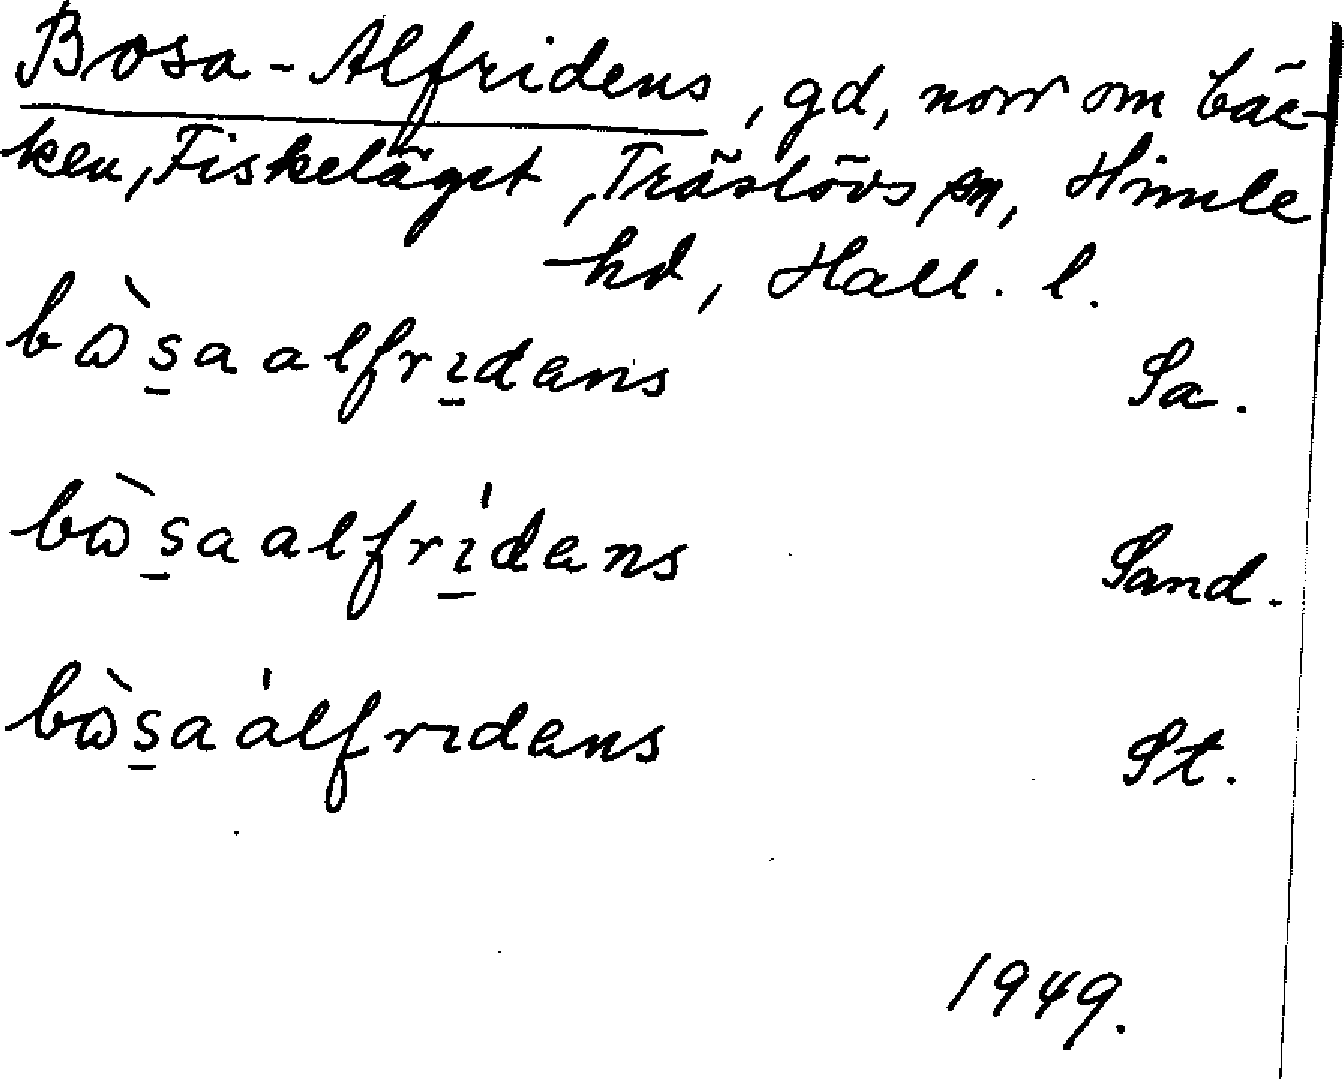 Bosa-Alfridens, gd, norr om bäc-
ken, Fiskeläget, Träslövs sn, Himle
hd, Hall. l.
bɷ̀s̱aalfrɪ̱dans Sa.
bɷ̀s̱aalfrɪ̱́dans Sand.
bɷ̀s̱aálfrɪdans St.
1949.